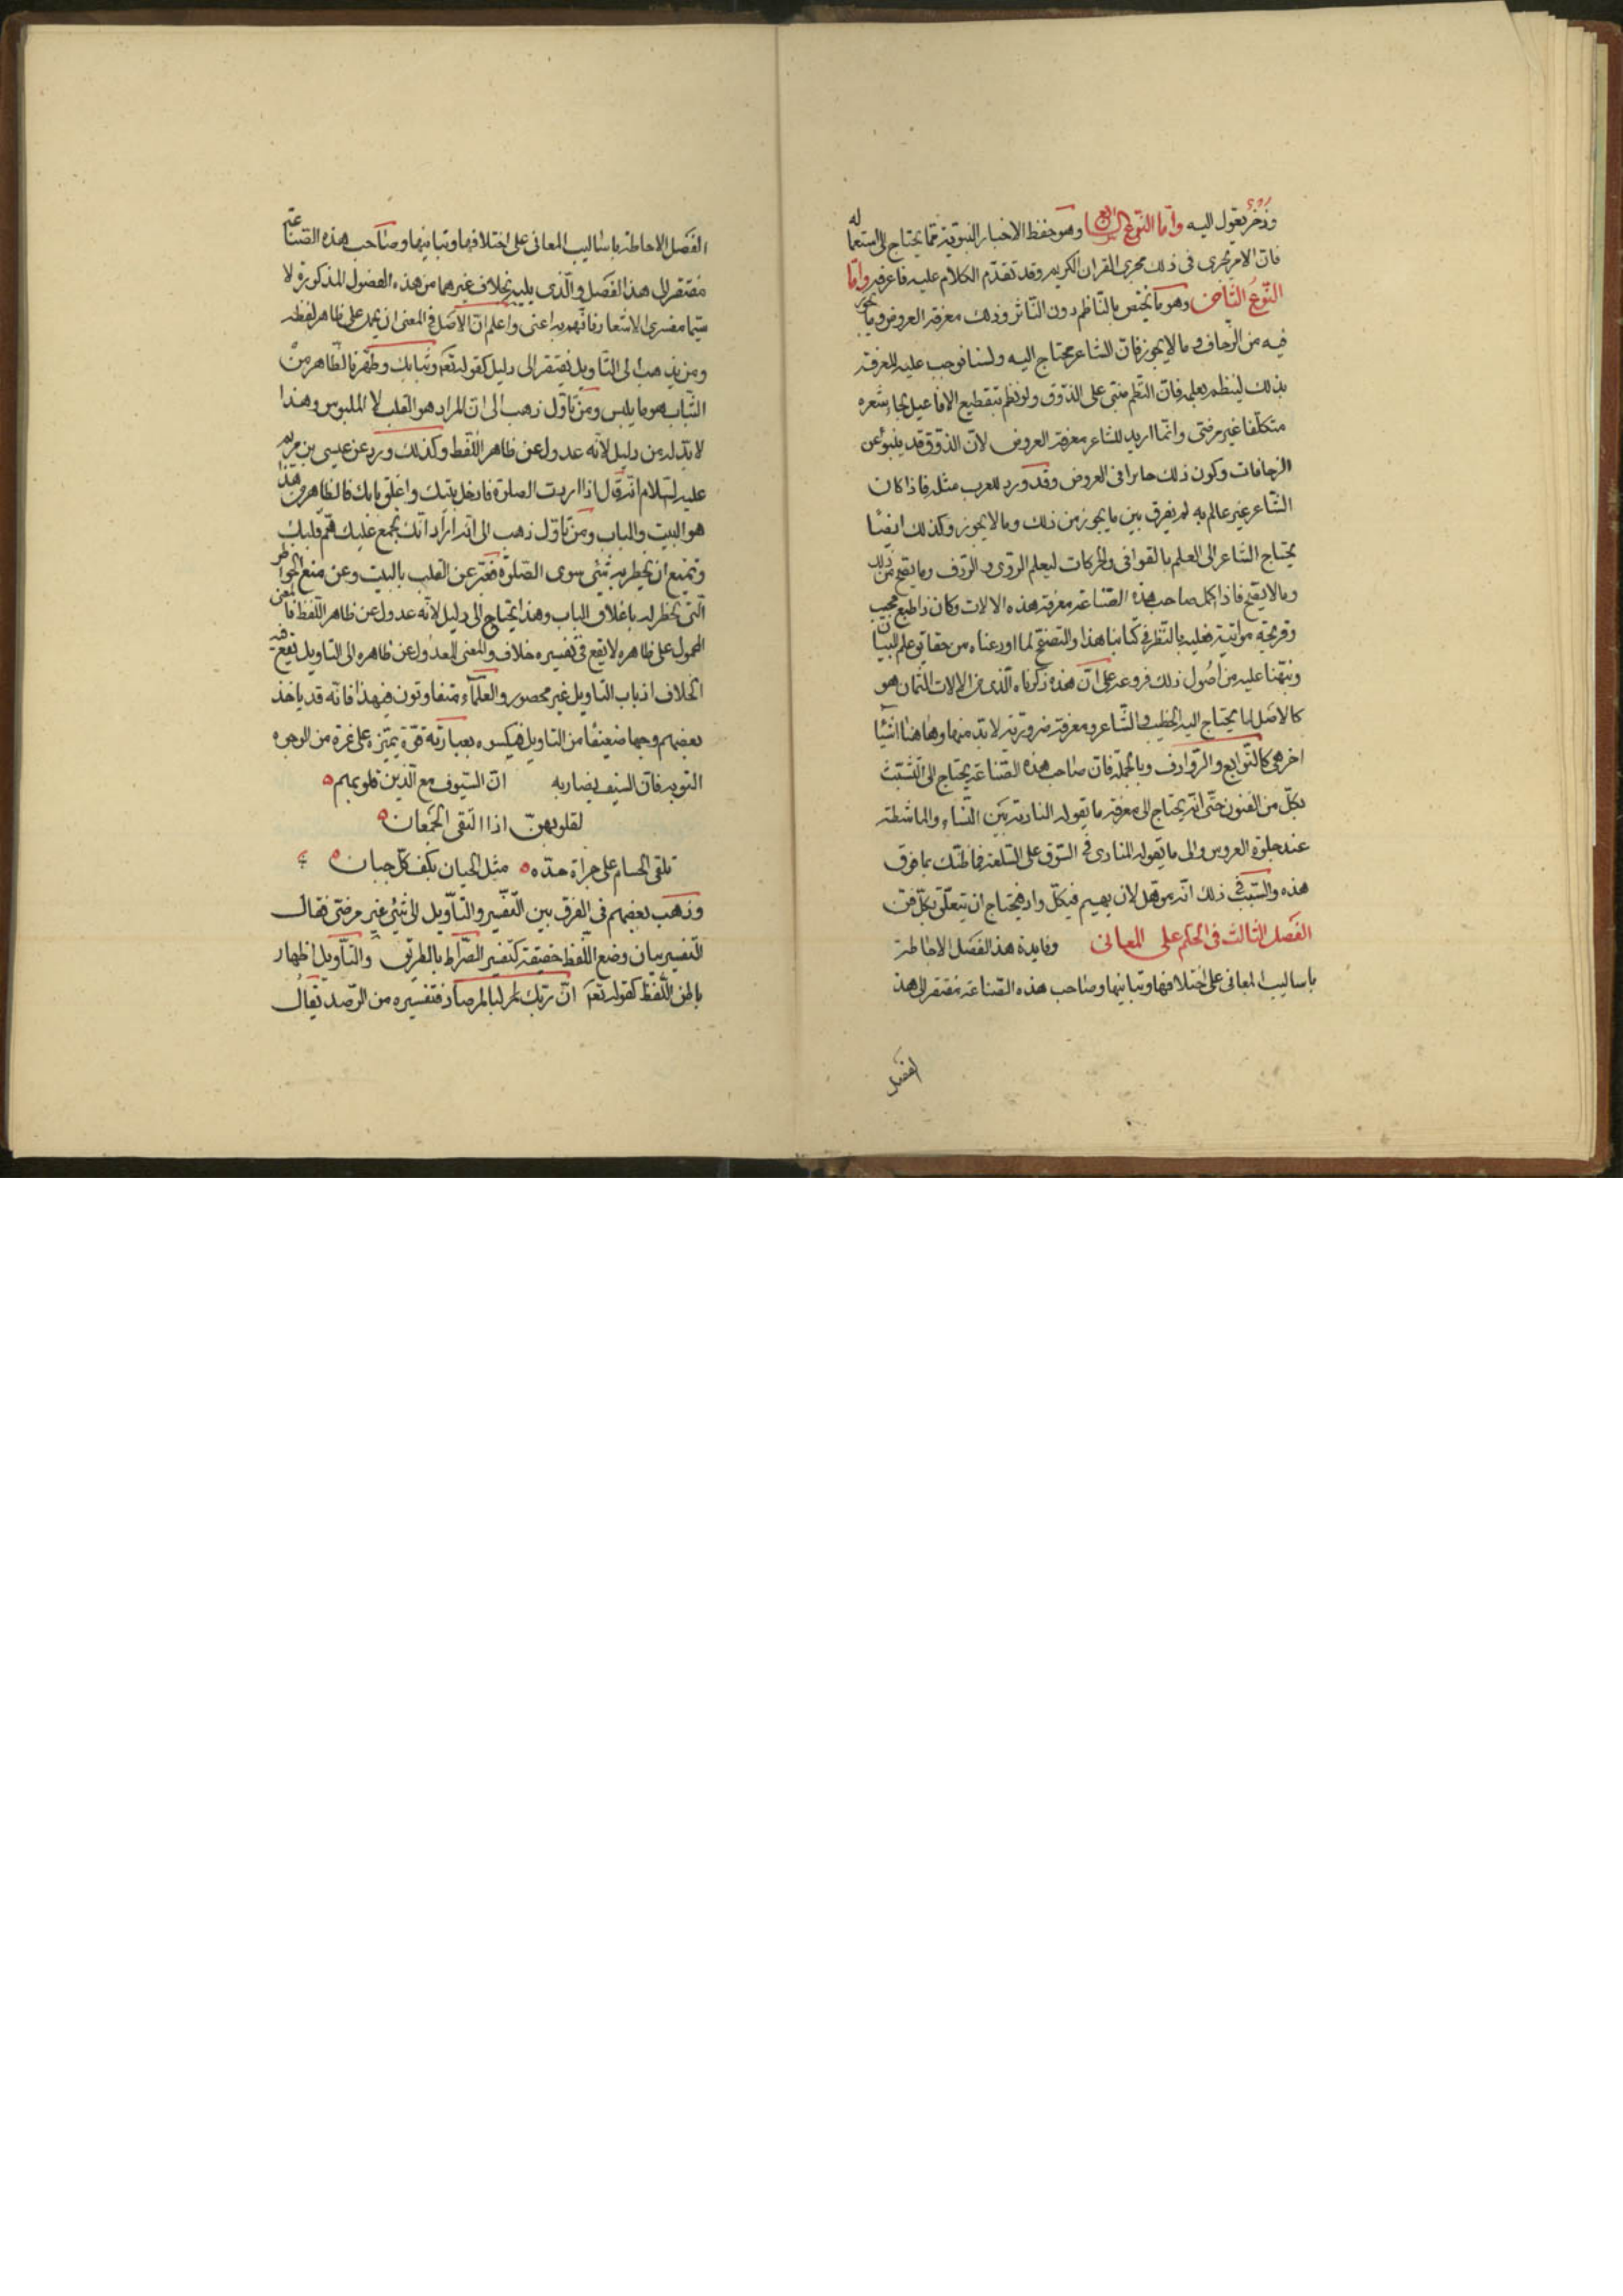 وذخر يعول اليه واما النوع السابع وهو حفظ الاخبار النبوية مما يحتاج الى استعماله
فان الامر يجرى فى ذلك مجرى القران الكريم وقد تقدم الكلام عليه فاعرفه واما
النوع الثامن وهو ما يختص بالناظم دون الناثر وذلك معرفة العروض وما يجوز
فيه من الزحاف وما لا يجوز فان الشاعر محتاج اليه ولسنا نوجب عليه المعرفة
بذلك لينظم بعلمه فان النظم مبنى على الذوق ولو نظم بتقطيع الافاعيل لجاء شعره
متكلفا غير مرضى وانما اريد للشاعر معرفة العروض لان الذوق قد ينبو عن
الزحافات وكون ذلك جايزا فى العروض وقد ورد للعرب مثله فاذا كان
الشاعر غير عالم به لم يفرق بين ما يجوز من ذلك وما لا يجوز وكذلك ايضا
يحتاج الشاعر الى العلم بالقوافى والحركات ليعلم الروى والردف وما يصح من ذلك
وما لا يصح فاذا كمل صاحب هذه الصناعة معرفة هذه الالات وكان ذا طبع مجيب
وقريحة مواتية فعليه بالنظر فى كتابنا هذا والتصفح لما اودعناه من حقايق علم البيان
ونبهنا عليه من اصول ذلك فروعه على ان هذه ذكرناه الذى من الالات الثمان هو
كالاصل لما يحتاج اليه الخطيب والشاعر ومعرفته ضرورية لا بد منها وهاهنا اشيأ
اخر هى كالتوابع والروادف وبالجملة فان صاحب هذه الصناعة يحتاج الى التشبث
بكل من الفنون حتى انه يحتاج الى معرفة ما تقوله النادبة بين النساء والماشطة
عند جلوة العروس والى ما يقوله المنادى فى السوق على السلعة فما ظنك بما فوق
هذه والسبب فى ذلك انه موهل لان يهيم فى كل واد فيحتاج ان يتعلق بكل فن
الفصل الثالث فى الحكم على المعانى وفايدة هذا الفصل الاحاطة
باساليب المعانى على اختلافها وتباينها وصاحب هذه الصناعة مفتقر الى هذا
الفصل
الفصل الاحاطة باساليب المعانى على اختلافها وتباينها وصاحب هذه الصناعة
مفتقر الى هذا الفصل والذى يليه بخلاف غيرهما من هذه الفصول المذكورة لا
سيما مفسرى الاشعار فانهم به اعنى واعلم ان الاصل فى المعنى ان يحمل على ظاهر لفظه
ومن يذهب الى التاويل يفتقر الى دليل كقوله تعم وثيابك وطهر فالظاهر من
الثياب هو ما يلبس ومن تاول ذهب الى ان المراد هو القلب لا الملبوس وهذا
لا بد له من دليل لانه عدول عن ظاهر اللفظ وكذلك ورد عن عيسى بن مريم
عليه السلام انه قال اذا اردت الصلوة فادخل بيتك واغلق بابك فالظاهر من هذا
هو البيت والباب ومن تاول ذهب الى انه اراد انك تجمع عليك هم قلبك
وتمنع ان يخطر به شئ سوى الصلوة فعبر عن القلب بالبيت وعن منع الخواطر
التى تخطر له باغلاق الباب وهذا يحتاج الى دليل لانه عدول عن ظاهر اللفظ فالمعنى
المحمول على ظاهره لا يقع فى تفسيره خلاف والمعنى المعدول عن ظاهره الى التاويل يقع فيه
الخلاف اذ باب التاويل غير محصور والعلمآء متفاوتون فى هذا فانه قد ياخذ
بعضهم وجها ضعيفا من التاويل فيكسوه بعبارته قوة تميزه على غيره من الوجوه
القوية فان السيف بضاربه ان السيوف مع الذين قلوبهم
كقلوبهن اذا التقى الجمعان
تلقى الحسام على جراة حده مثل الجبان بكف كل جبان
وذهب بعضهم فى الفرق بين التفسير والتأويل الى شئ غير مرضى فقال
التفسير بيان وضع اللفظ حقيقة كتفسير الصراط بالطريق والتأويل اظهار
باطن اللفظ كقوله تعم ان ربك لبالمرصاد فتفسيره من الرصد يقال